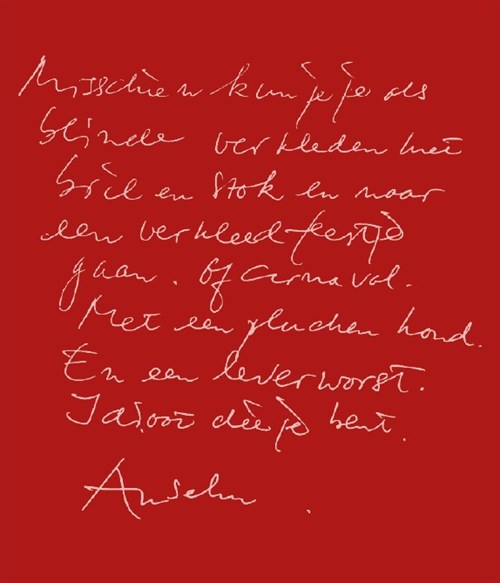 Misschien kun je je als
blinde verkleden met
bril en stok en naar
een verkleed-feestje
gaan. Of carnaval.
Met een pluchen hond.
En een leverworst.
Idioot die je bent.
Anselm.